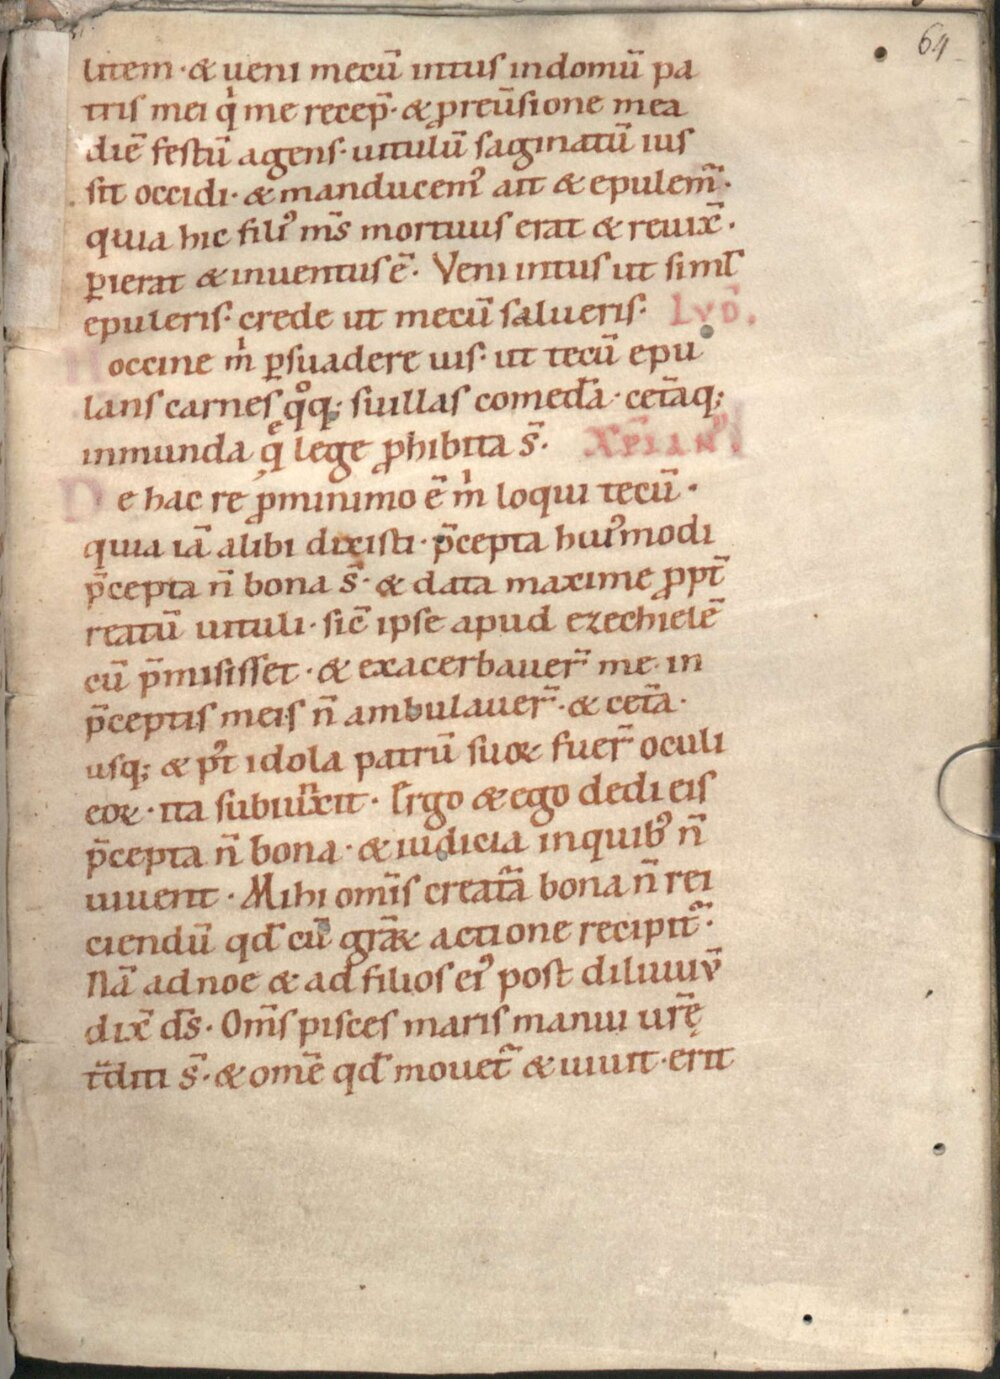 64
litem · & ueni mecū intus indomū pa
tris mei qͥ me recep̄ · & ꝓreūsione mea
diē festū agens · uitulū saginatū ius
sit occidi · & manducemꝰ ait & epulem̄ ·
quia hic filiꝰ m̄s mortuus erat & reuix̄ ·
ꝑierat & inuentus ē · Veni intus ut siml̄
epuleris · crede ut mecū salueris · LVD̄.
Hoccine m̍ ꝑsuadere uis · ut tecū epu
lans carnes qͦq; suillas comedā · cetāq;
inmunda q̄ lege ꝓhibita s̄ · XP̄IANꝰ.
De hac re ꝓminimo ē m̍ loqui tecū ·
quia iā alibi dixisti · p̄cepta huiꝰmodi
p̄cepta n̄ bona s̄ · & data maxime ꝓpt̄
reatū uituli · sic̄ ipse apud ezechielē
cū p̄misisset · & exacerbauer̄ me · in
p̄ceptis meis n̄ ambulauer̄ · & cetā ·
usq; & pꝰt idola patrū suoꝝ fuer̄ oculi
eoꝝ · ita subiunxit · Ergo & ego dedi eis
p̄cepta n̄ bona · & iudicia inquibꝰ n̄
uiuent · Mihi om̄is creat̄a bona n̄ rei
ciendū qd̄ cū gr̄aꝝ actione recipit̄ ·
Nā adnoe & ad filios eiꝰ post diluuiū
dix̄ d̄s · Om̄s pisces maris manui ur̄ę
t̄diti s̄ · & omē qd̄ mouet̄ & uiuit · erit